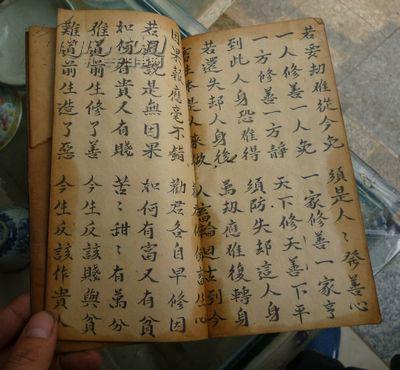 若要劫難從今免 須是人〻發善心
一人修善一人免 一家修善一家亨
一方修善一方静 天下修天善下平
到此人身恐難得 須防失却這人身
若還失却人身後 萬劫應難復轉身
生本是人來做 到今
因果報應毫不錯 勸君各自早修因
若還說是無因果 如何有富又有貧
如何有貴又有賤 苦〻甜〻有萬分
難道前生修了善 今生反該賤與貧
難道前生造了惡 今生反該作貴人